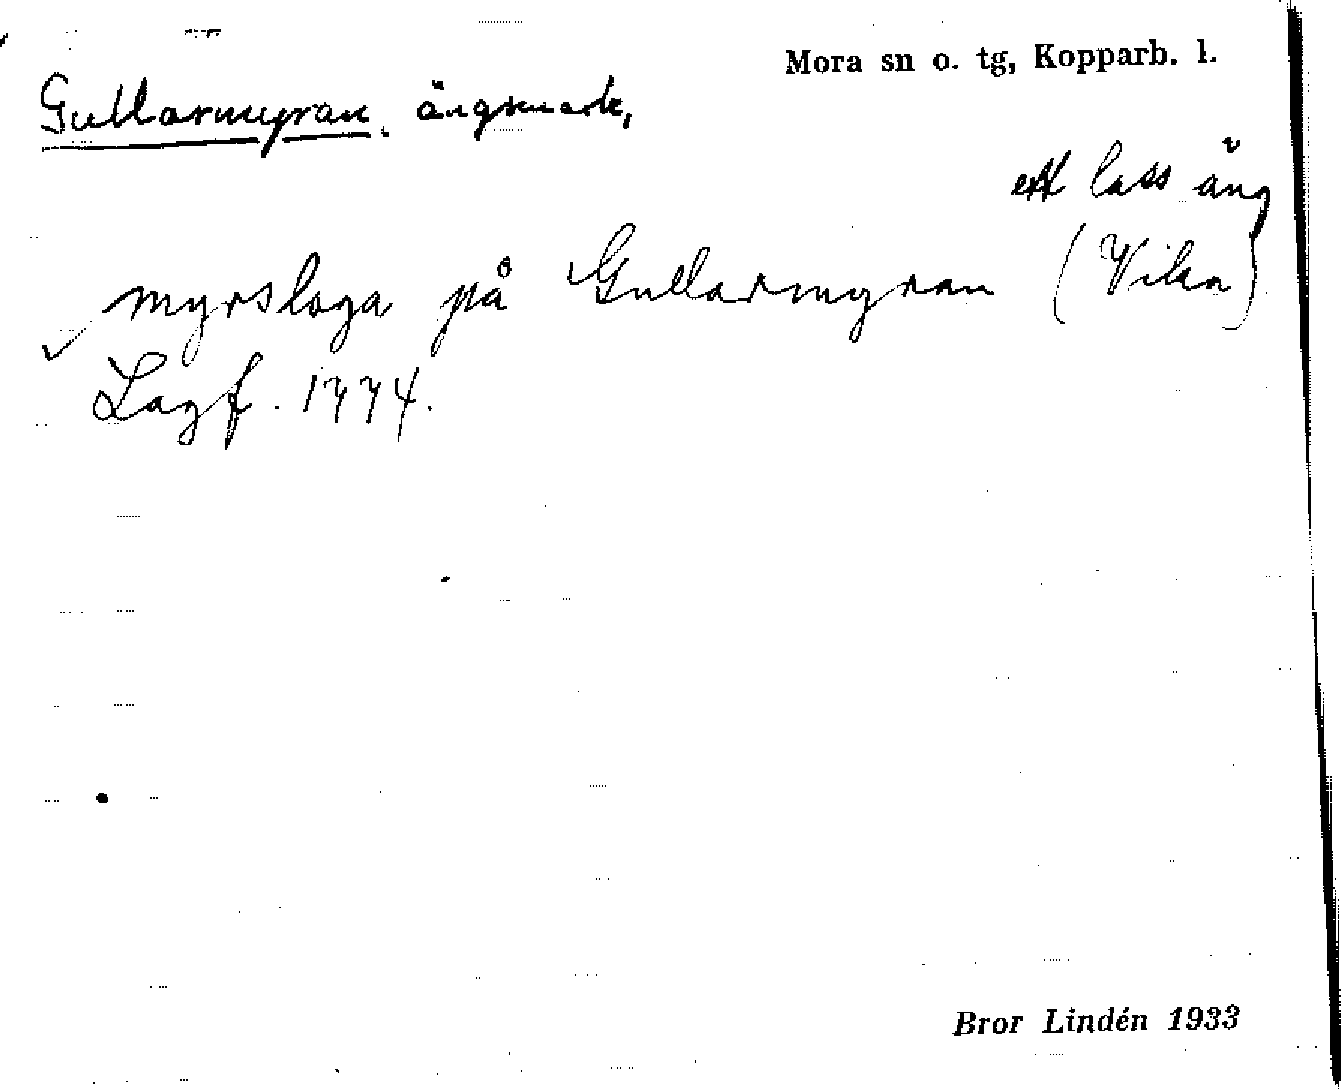 Mora sn o. tg, Kopparb. l.
Gullarmyran, ängsmark,
ett lass äng
myrsloga på Gullarmyran (Vika)
Lagf. 1774.
Bror Lindén 1933